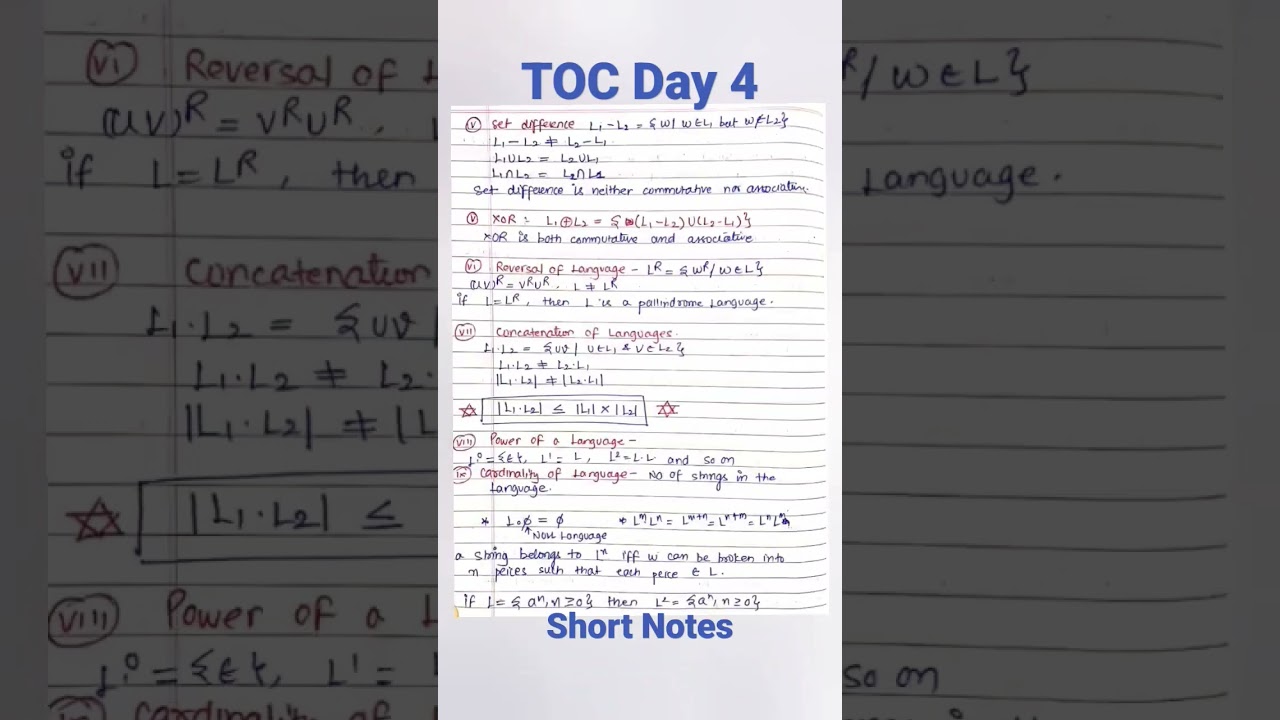 TOC Day 4
(v) Set difference L₁-L₂ = {w/ w∈L₁ but w∉L₂}
L₁-L₂ ≠ L₂-L₁
L₁∪L₂ = L₂∪L₁
L₁∩L₂ = L₂∩L₁
Set difference is neither commutative nor associative.
(v) XOR :- L₁⊕L₂ = {(L₁-L₂)∪(L₂-L₁)}
XOR is both commutative and associative
(vi) Reversal of Language - Lᴿ = {wᴿ/ w∈L}
(uv)ᴿ = vᴿuᴿ. L ≠ Lᴿ
if L=Lᴿ, then L is a pallindrome Language.
(vii) Concatenation of Languages.
L₁.L₂ = {uv | u∈L₁ & v∈L₂}
L₁.L₂ ≠ L₂.L₁
|L₁.L₂| ≠ |L₂.L₁|
|L₁.L₂| ≤ |L₁| × |L₂|
(viii) Power of a Language -
L⁰={ε}, L¹= L, L²=L.L and so on
(ix) Cardinality of Language - No of strings in the
Language.
* L.ϕ = ϕ * LᵐLⁿ = Lᵐ⁺ⁿ = Lⁿ⁺ᵐ = LⁿLᵐ
↑ Null Language
a string belongs to Lⁿ iff w can be broken into
n peices such that each peice ∈ L.
if L = {aⁿ, n≥0} then L² = {aⁿ, n≥0}
Short Notes
(vi) Reversal of
ᴿ/ w∈L}
(uv)ᴿ = vᴿuᴿ.
if L=Lᴿ, then
Language.
(vii) Concatenation
L₁.L₂ = {uv
L₁.L₂ ≠ L₂.
|L₁.L₂| ≠ |L
|L₁.L₂| ≤
(viii) Power of a L
L⁰={ε}, L¹=
so on
Cardinality of